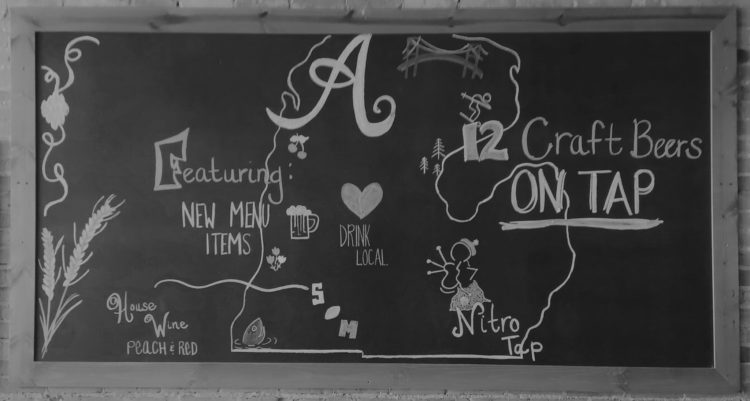 A
12 Craft Beers
ON TAP
Featuring:
NEW MENU
ITEMS
DRINK
LOCAL.
House
Wine
PEACH & RED
S M
Nitro
Tap